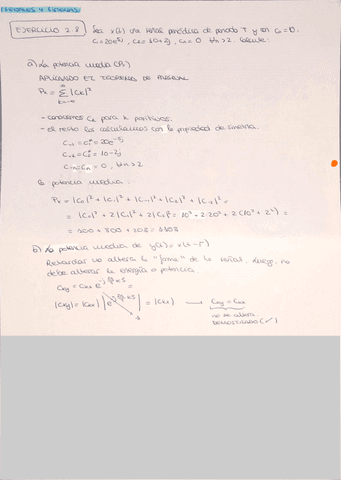 SEÑALES Y SISTEMAS
EJERCICIO 2.8 Sea x(t) una señal periódica de periodo T y con C₀=10.
C₁=20e^5j, C₂=10+2j, Cₙ=0 ∀n>2. Calcule:
a) La potencia media (Pₓ)
APLICANDO EL TEOREMA DE PARSEVAL
Pₓ = Σ |Cₖ|²
k=-∞
- conocemos Cₖ para k positivos.
- el resto las calculamos con la propiedad de simetría.
C₋₁ = C₁* = 20e^-5j
C₋₂ = C₂* = 10-2j
C₋ₙ = Cₙ = 0, ∀n>2
La potencia media:
Pₓ = |C₀|² + |C₁|² + |C₋₁|² + |C₂|² + |C₋₂|² =
= |C₀|² + 2|C₁|² + 2|C₂|² = 10² + 2·20² + 2(10² + 2²) =
= 100 + 800 + 208 = 1108
b) La potencia media de y(t) = x(t-5)
Retardar no altera la "forma" de la señal, luego, no
debe alterar la energía o potencia.
= |Cₖₓ| → 
no se altera
DEMOSTRADO (✓)
1